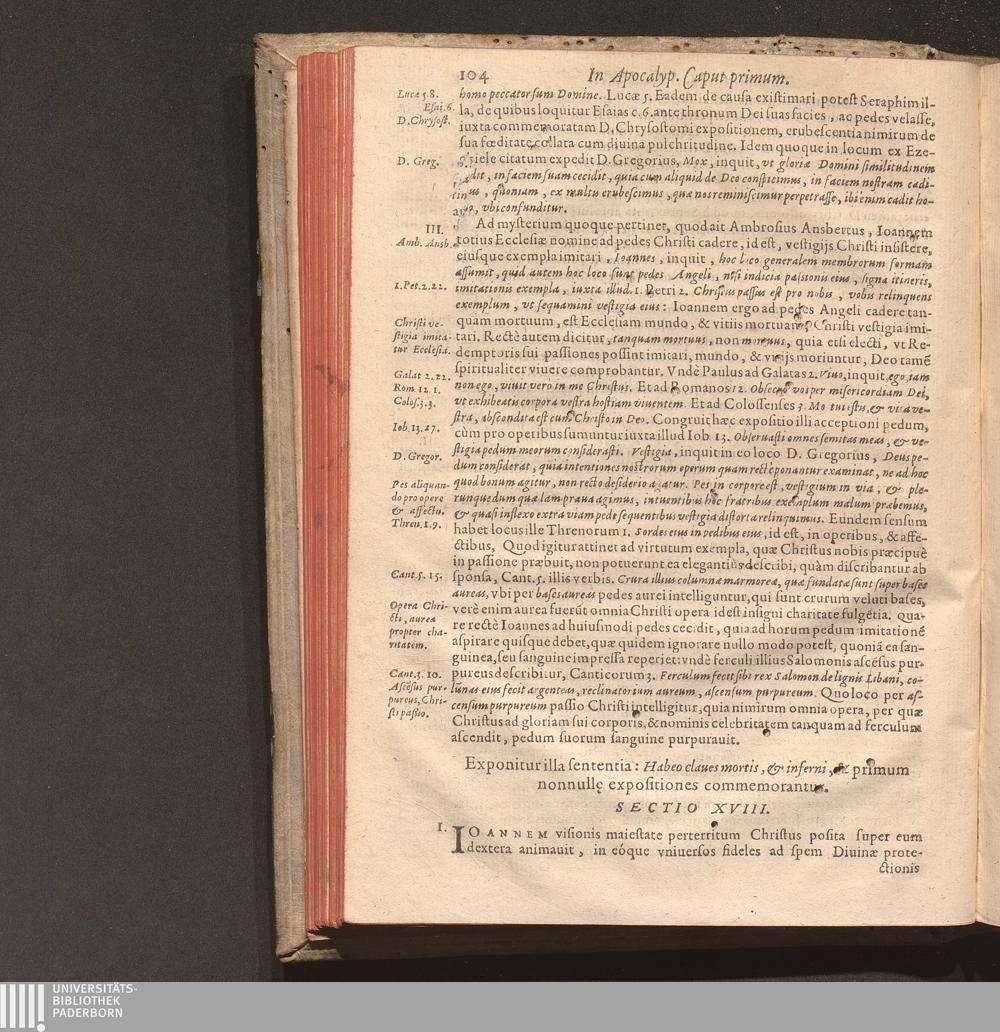 104 In Apocalyp. Caput primum.
Lucæ 5.8.
Esai.6.
D. Chrysost.
homo peccator sum Domine. Lucæ 5. Eadem de causa existimari potest Seraphim il-
la, de quibus loquitur Esaias c. 6. ante thronum Dei suas facies, ac pedes velasse,
iuxta commemoratam D. Chrysostomi expositionem, erubescentia nimirum de
sua fœditate collata cum diuina pulchritudine. Idem quoque in locum ex Eze-
D. Greg.
chiele citatum expedit D. Gregorius, Mox, inquit, vt gloriæ Domini similitudinem
vidit, in faciem suam cecidit, quia cum aliquid de Deo conspicimus, in faciem nostram cadi-
quoniam, ex multis erubescimus, quæ nos reminiscimur perpetrasse, ibi enim cadit ho-
vbi confunditur.
III.
Amb. Ansb.
Ad mysterium quoque pertinet, quod ait Ambrosius Ansbertus, Ioannem
totius Ecclesiæ nomine ad pedes Christi cadere, id est, vestigijs Christi insistere,
eiusque exempla imitari, Ioannes, inquit, hoc loco generalem membrorum formam
assumit, quid autem hoc loco sunt pedes Angeli, nisi indicia passionis eius, signa itineris,
1. Pet. 2. 22.
imitationis exempla, iuxta illud. 1. Petri 2. Christus passus est pro nobis, vobis relinquens
exemplum, vt sequamini vestigia eius: Ioannem ergo ad pedes Angeli cadere tan-
Christi ve-
stigia imita-
tur Ecclesia.
quam mortuum, est Ecclesiam mundo, & vitiis mortuam, Christi vestigia imi-
tari. Rectè autem dicitur, tanquam mortuus, non mortuus, quia etsi electi, vt Re-
demptoris sui passiones possint imitari, mundo, & vitijs moriuntur, Deo tamē
Galat 2. 22.
Rom 12. 1.
Colos. 3. 3.
spiritualiter viuere comprobantur. Vndè Paulus ad Galatas 2. Viuo, inquit, ego, iam
non ego, viuit vero in me Christus. Et ad Romanos 12. Obsecro vos per misericordiam Dei,
vt exhibeatis corpora vestra hostiam viuentem. Et ad Colossenses 3. Mortui estis, & vita ve-
stra, abscondita est cum Christo in Deo. Congruit hæc expositio illi acceptioni pedum,
Iob. 13. 27.
cùm pro operibus sumuntur iuxta illud Iob 13. Obseruasti omnes semitas meas, & ve-
stigia pedum meorum considerasti. Vestigia, inquit in eo loco D. Gregorius, Deus pe-
D. Gregor.
dum considerat, quia intentiones nostrorum operum quam rectè ponantur examinat, ne ad hoc
Pes aliquan-
do pro opere
& affectu.
Thren. 1. 9.
quod bonum agitur, non recto desiderio agatur. Pes in corpore est, vestigium in via, & ple-
runque dum quædam praua agimus, intuentibus hoc fratribus exemplum malum præbemus,
& quasi inflexo extra viam pede sequentibus vestigia distorta relinquimus. Eundem sensum
habet locus ille Threnorum 1. Sordes eius in pedibus eius, id est, in operibus, & affe-
ctibus, Quod igitur attinet ad virtutum exempla, quæ Christus nobis præcipuè
in passione præbuit, non potuerunt ea elegantiùs describi, quàm discribantur ab
Cant. 5. 15.
sponsa, Cant. 5. illis verbis. Crura illius columnæ marmoreæ, quæ fundatæ sunt super bases
aureas, vbi per bases aureas pedes aurei intelliguntur, qui sunt crurum veluti bases,
Opera Chri-
sti, aurea
propter cha-
ritatem.
verè enim aurea fuerūt omnia Christi opera id est insigni charitate fulgētia. Qua-
re rectè Ioannes ad huiusmodi pedes cecidit, quia ad horum pedum imitationē
aspirare quisque debet, quæ quidem ignorare nullo modo potest, quoniā ea san-
guinea, seu sanguine impressa reperiet: vndè ferculi illius Salomonis ascēsus pur-
Cant. 3. 10.
Ascēsus pur-
pureus, Chri-
sti passio.
pureus describitur, Canticorum 3. Ferculum fecit sibi rex Salomon de lignis Libani, co-
lūnas eius fecit argenteas, reclinatorium aureum, ascensum purpureum. Quo loco per as-
censum purpureum passio Christi intelligitur, quia nimirum omnia opera, per quæ
Christus ad gloriam sui corporis, & nominis celebritatem tanquam ad ferculum
ascendit, pedum suorum sanguine purpurauit.
Exponitur illa sententia: Habeo claues mortis, & inferni, & primum
nonnullę expositiones commemorantur.
SECTIO XVIII.
1.
IOANNEM visionis maiestate perterritum Christus posita super eum
dextera animauit, in eóque vniuersos fideles ad spem Diuinæ prote-
ctionis
UNIVERSITÄTS-
BIBLIOTHEK
PADERBORN